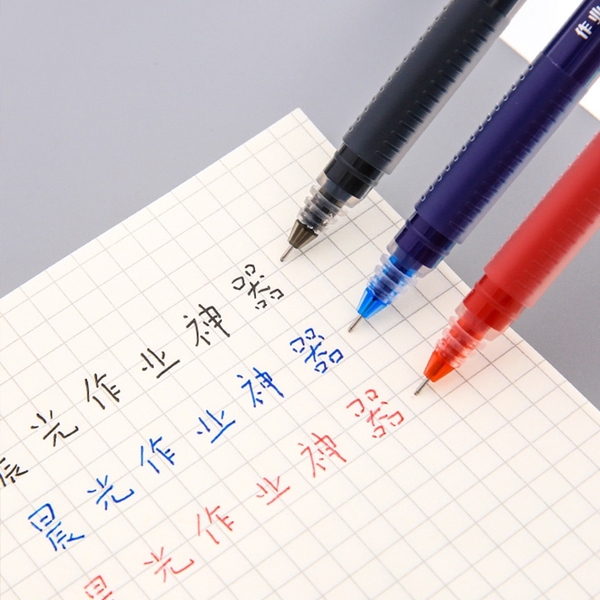 作业
晨光作业神器
晨光作业神器
晨光作业神器